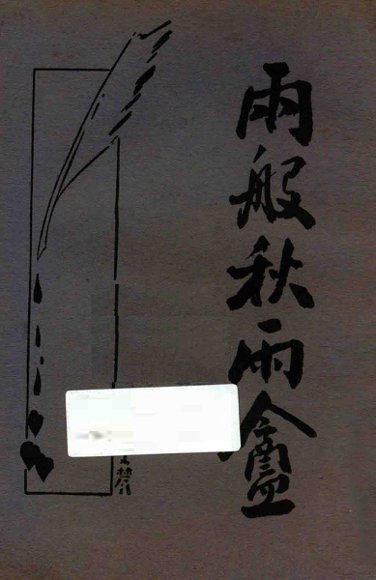 兩般秋雨盦